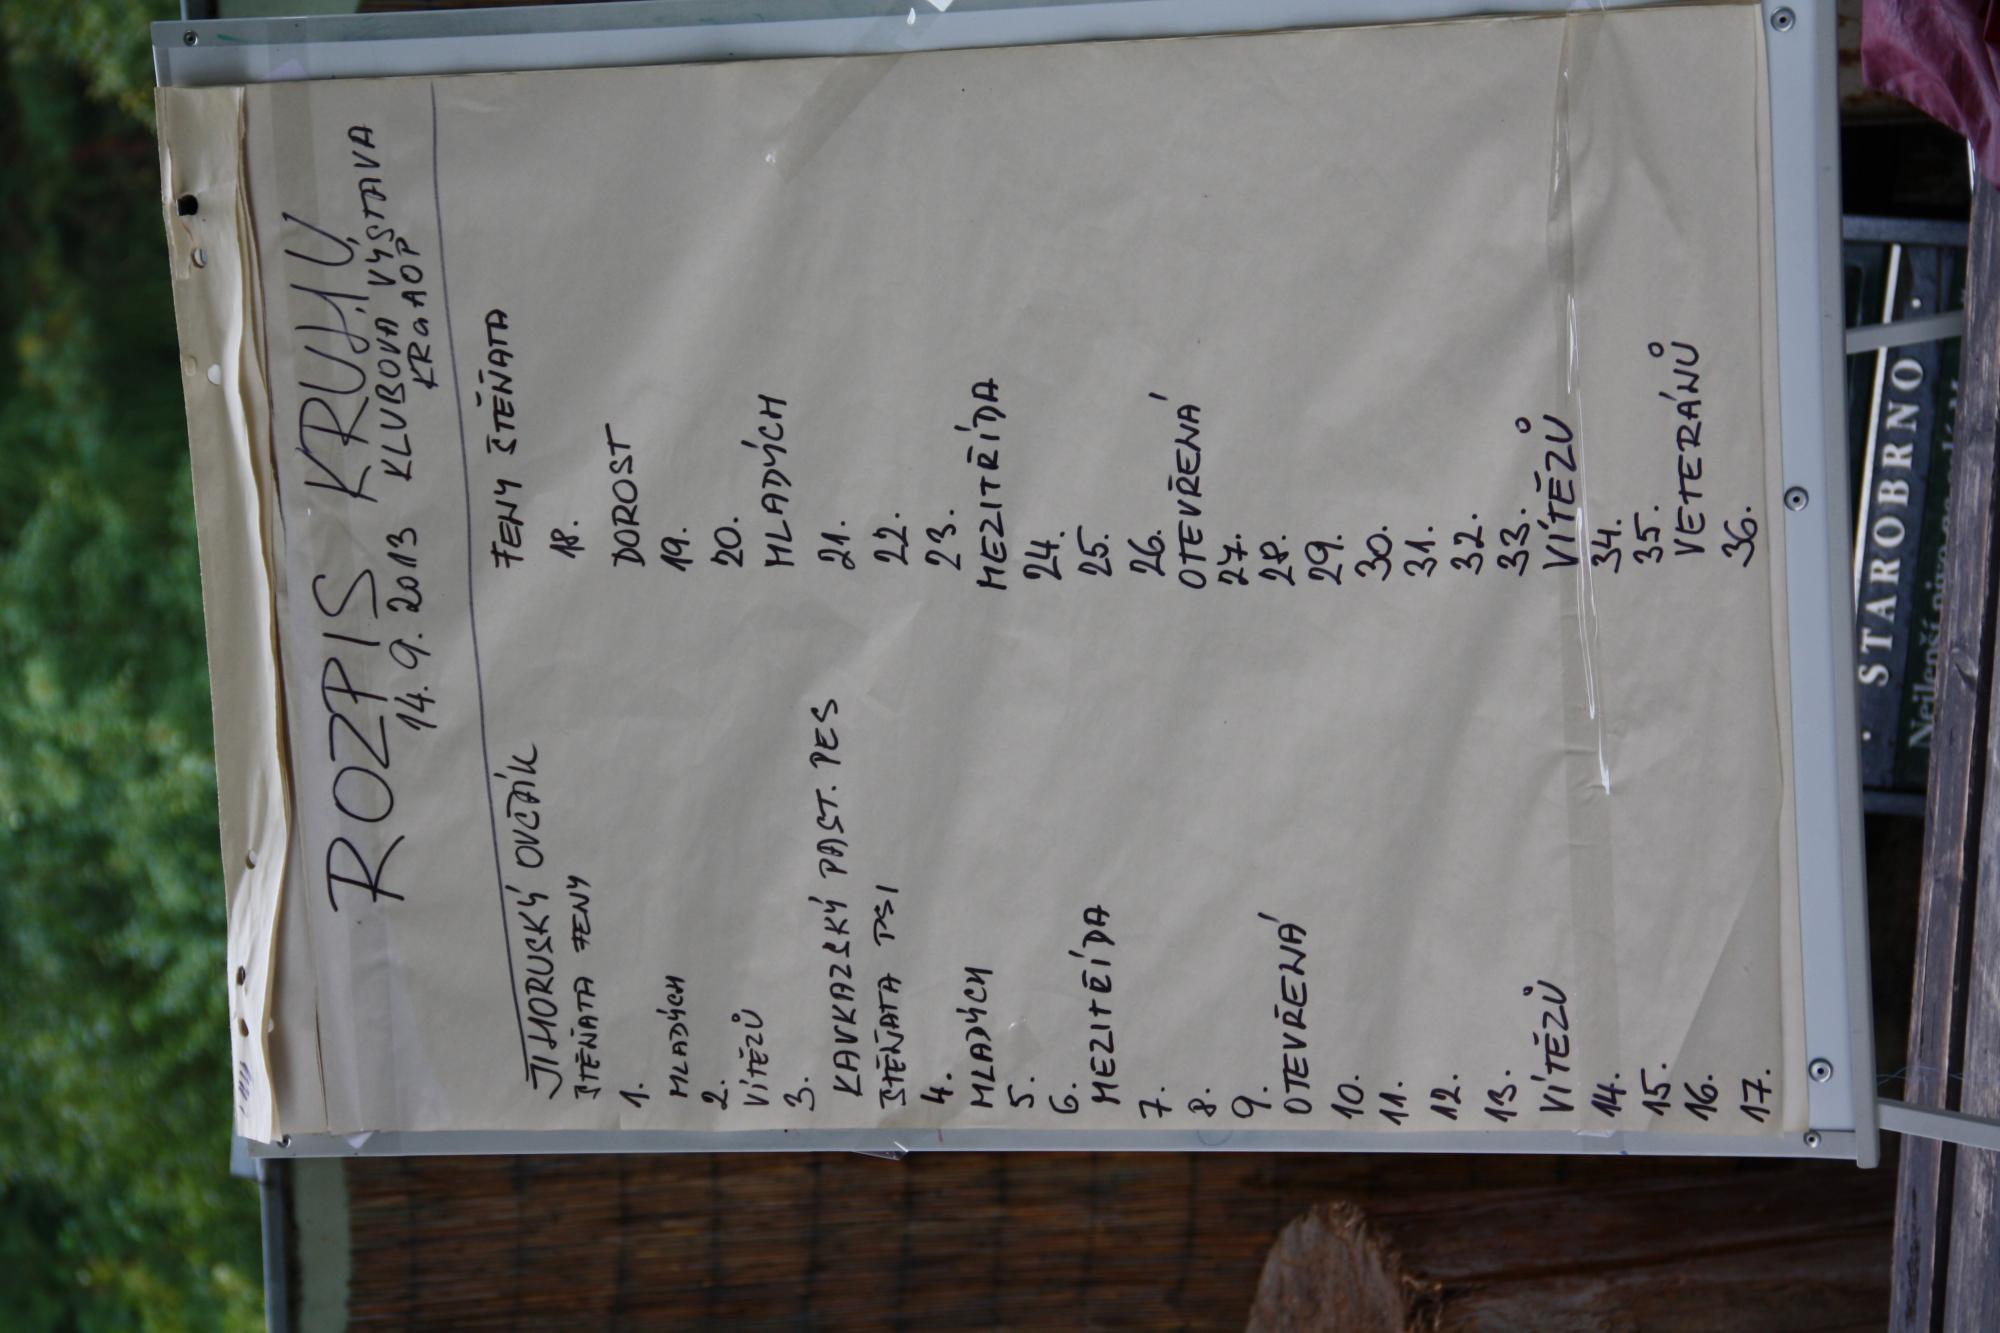 ROZPIS KRUHU
14. 9. 2013 KLUBOVÁ VÝSTAVA
KRaAOP
JIHORUSKÝ OVČÁK
ŠTĚŇATA FENY
1.
MLADÝCH
2.
VÍTĚZŮ
3.
KAVKAZSKÝ PAST. PES
ŠTĚŇATA PSI
4.
MLADÝCH
5.
6.
MEZITŘÍDA
7.
8.
9.
OTEVŘENÁ
10.
11.
12.
13.
VÍTĚZŮ
14.
15.
16.
17.
FENY ŠTĚŇATA
18.
DOROST
19.
20.
MLADÝCH
21.
22.
23.
MEZITŘÍDA
24.
25.
26.
OTEVŘENÁ
27.
28.
29.
30.
31.
32.
33.
VÍTĚZŮ
34.
35.
VETERÁNŮ
36.
· STAROBRNO ·